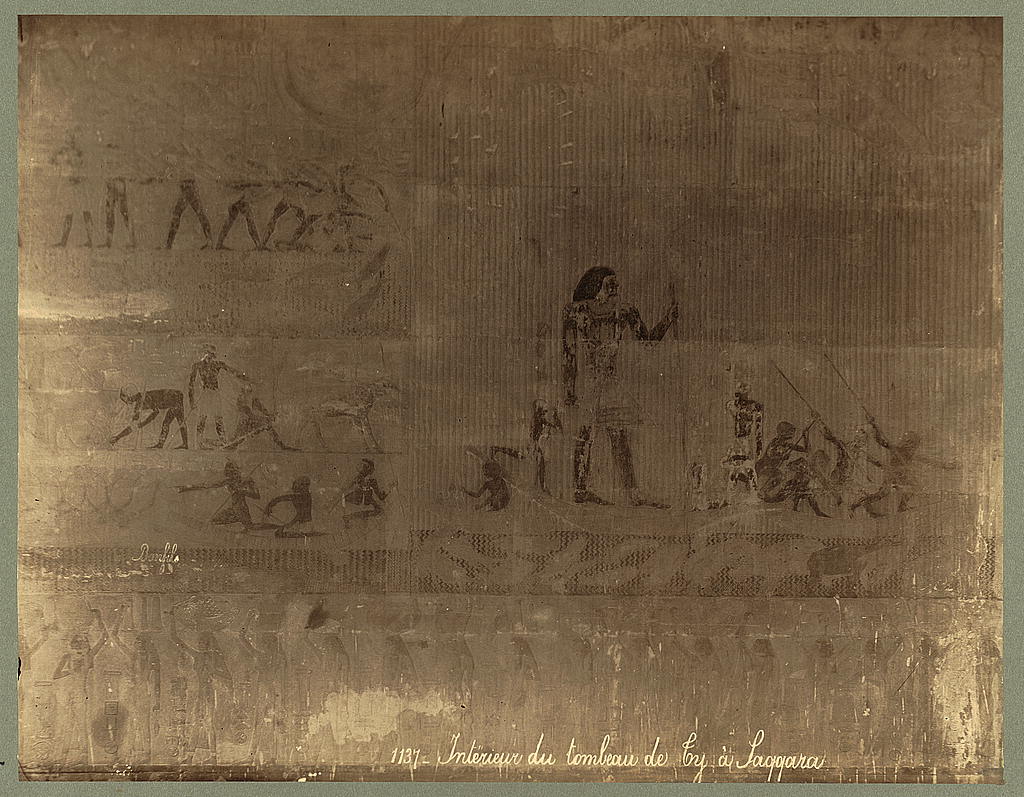 Bonfils
1137- Intérieur du tombeau de Ty à Saqqara